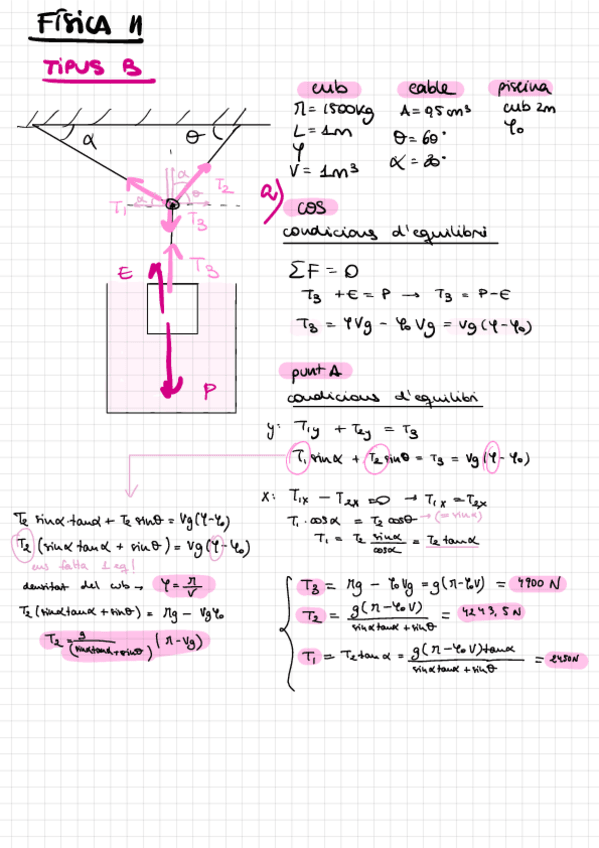 FÍSICA II
TIPUS B
α
θ
α
θ
T1
T2
T3
T3
E
P
cub
M = 1500kg
L = 1m
φ
V = 1m³
cable
A = 0,5cm²
θ = 60°
α = 30°
piscina
cub 2m
φ0
a)
cos
condicions d'equilibri
ΣF = 0
T3 + E = P → T3 = P-E
T3 = φVg - φ0Vg = Vg(φ-φ0)
punt A
condicions d'equilibri
y: T1y + T2y = T3
T1 sinα + T2 sinθ = T3 = Vg(φ-φ0)
x: T1x - T2x = 0 → T1x = T2x
T1·cosα = T2 cosθ → (= sinα)
T1 = T2 sinα/cosα = T2 tanα
T2 sinα tanα + T2 sinθ = Vg(φ-φ0)
T2 (sinα tanα + sinθ) = Vg(φ-φ0)
ens falta 1 eq!
densitat del cub → φ = M/V
T2 (sinα tanα + sinθ) = Mg - Vgφ0
T2 = g/(sinα tanα + sinθ) (M - Vg)
T3 = Mg - φ0Vg = g(M-φ0V) = 4900 N
T2 = g(M-φ0V)/(sinα tanα + sinθ) = 4243,5N
T1 = T2 tanα = g(M-φ0V)tanα/(sinα tanα + sinθ) = 2450N